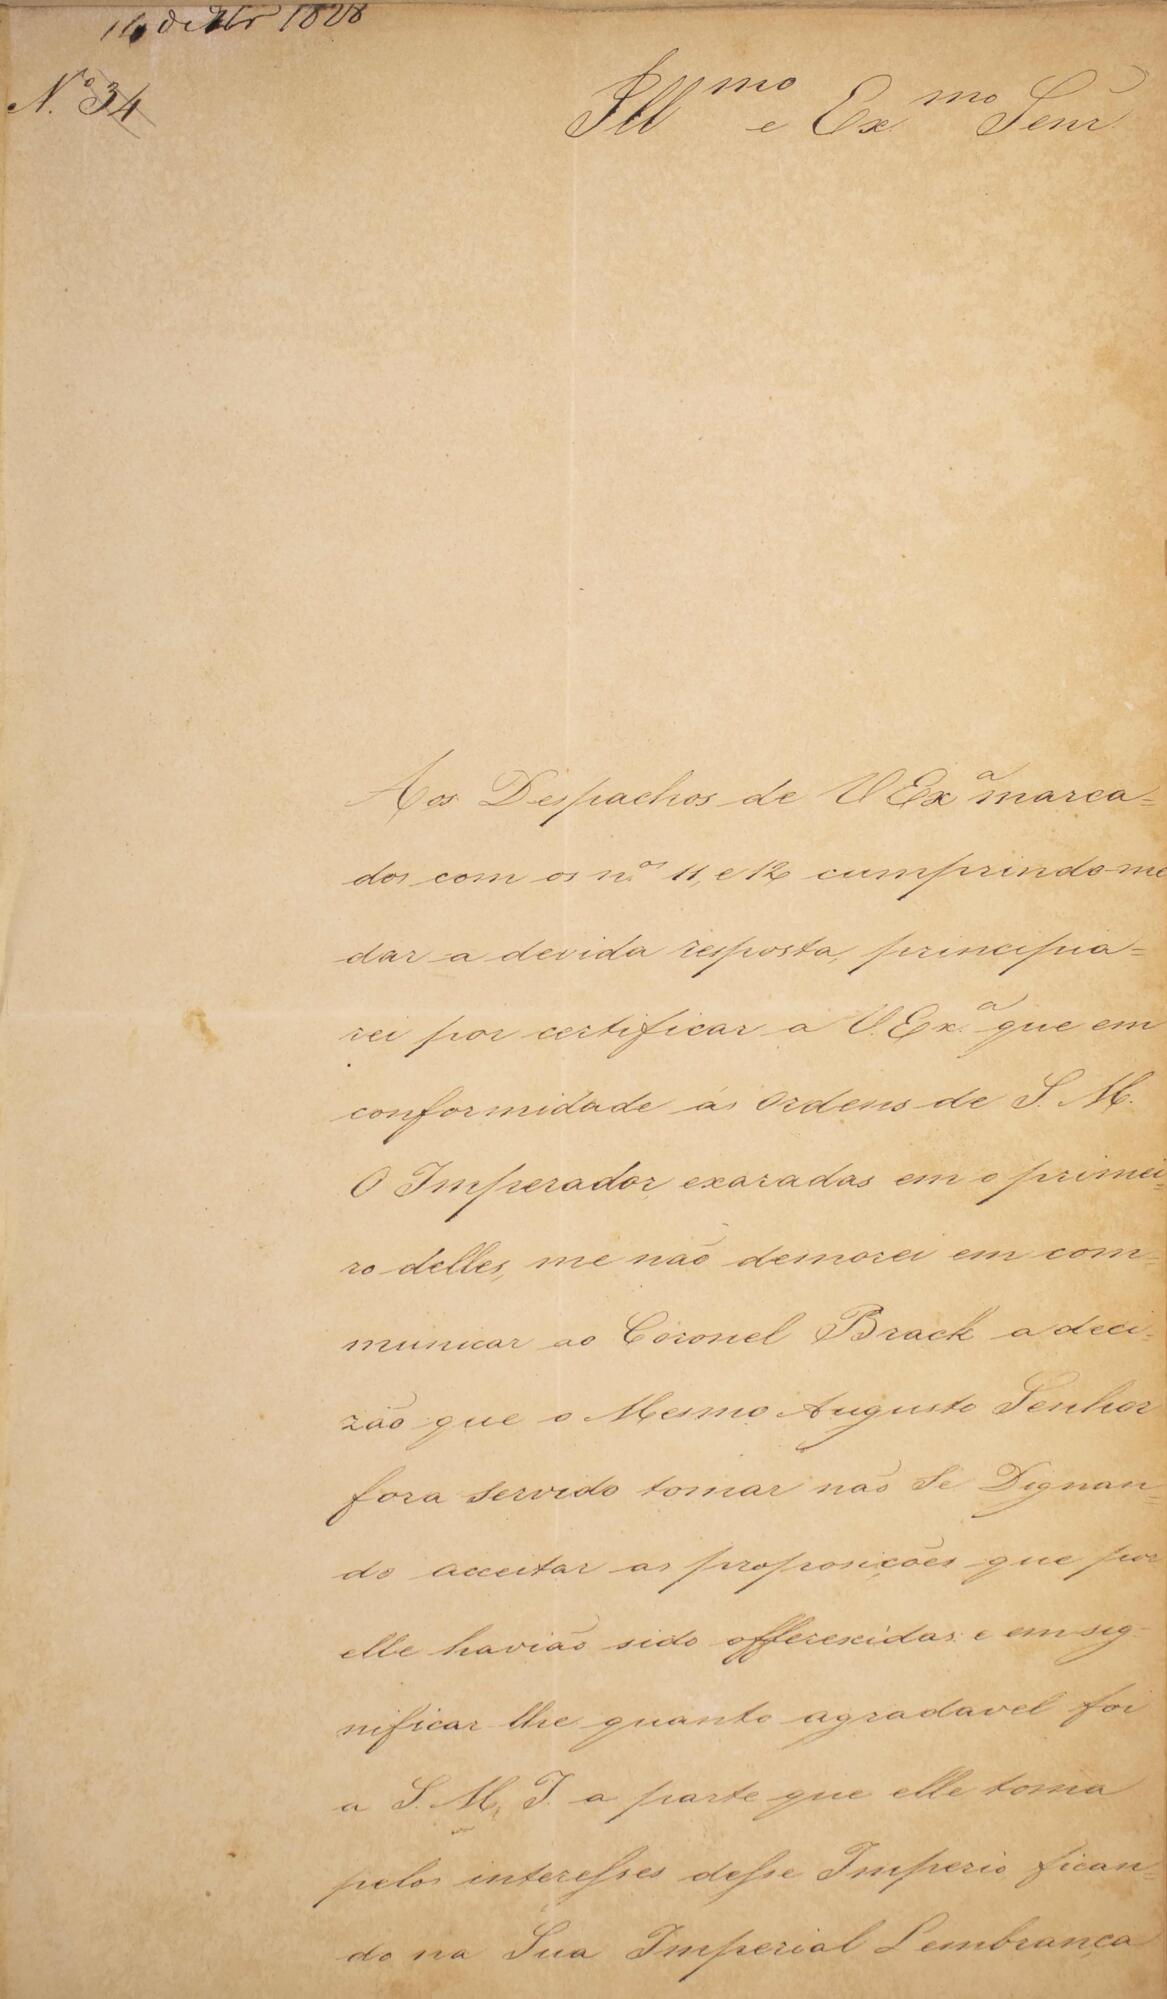 16 de 1828
N.º 34
Ill.mo e Ex.mo Senr
Aos Despachos de V Exa marca=
dos com os n.os 11, e 12 cumprindo-me
dar a devida resposta, principia=
rei por certificar a V. Ex.a que em
conformidade ás Ordens de S. M.
O Imperador exaradas em o primei=
ro delles, me não demorei em com=
municar ao Coronel Brack a deci=
zão que o Mesmo Augusto Senhor
fora servido tomar não Se Dignan=
do acceitar as proposições que por
elle havião sido offerecidas e em sig-
nificar lhe quanto agradavel foi
a S. M. I. a parte que elle toma
pelos interesses desse Imperio, fican=
do na Sua Imperial Lembrança